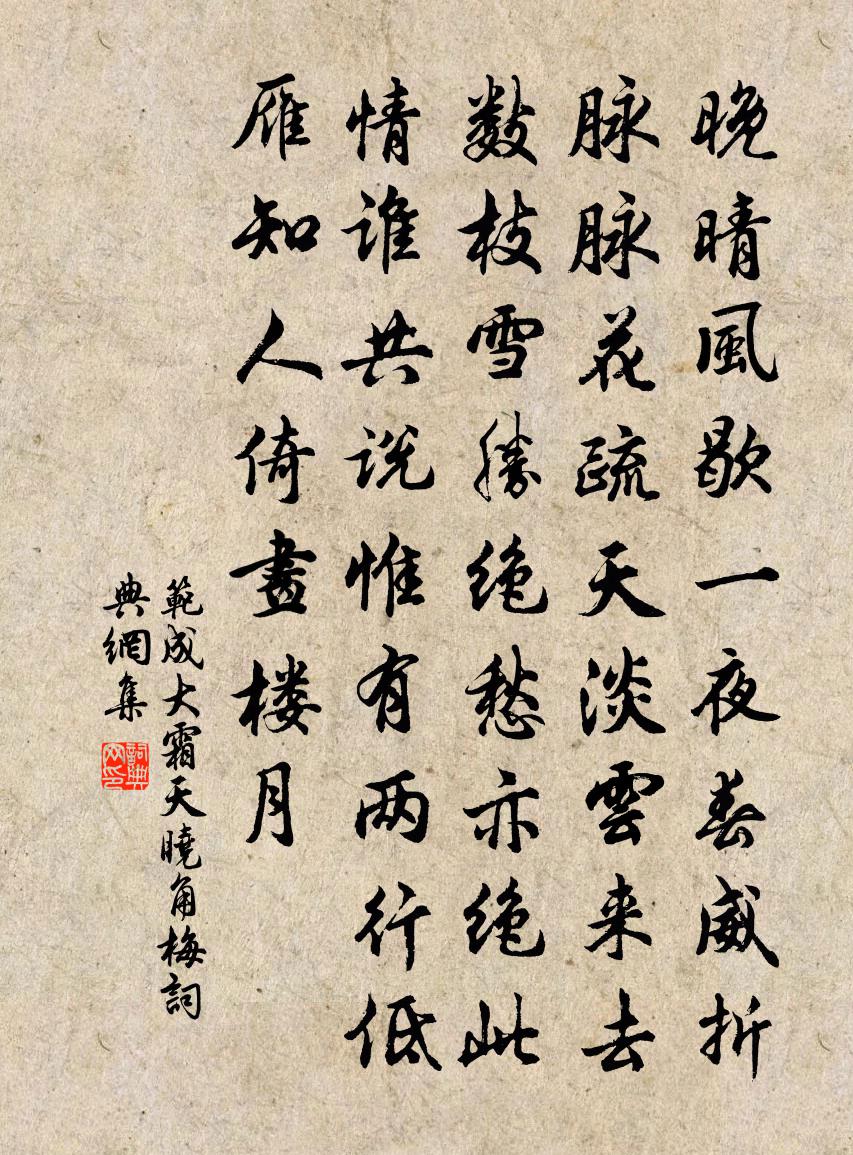 晚晴風歇一夜春威折
脉脉花疏天淡雲来去
数枝雪勝绝愁亦绝此
情谁共说惟有两行低
雁知人倚畫楼月
範成大霜天曉角梅詞
典網集
詞典网印